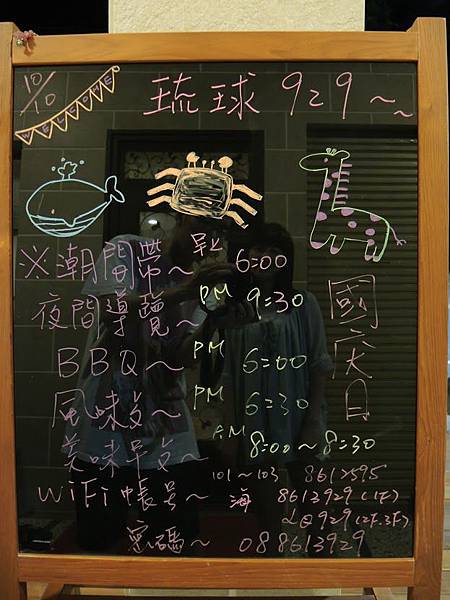 10/10
WELCOME
琉球 929~~
※潮間帶~ 早上 6:00
夜間導覽~ PM 9:30
BBQ~ PM 6:00
風味文~ PM 6:30
美味早文~ AM 8:00~8:30
國慶日
101~103 8612595
WiFi帳号~ 海 8613929(1F)
LQ929(2F.3F)
密碼~ 088613929